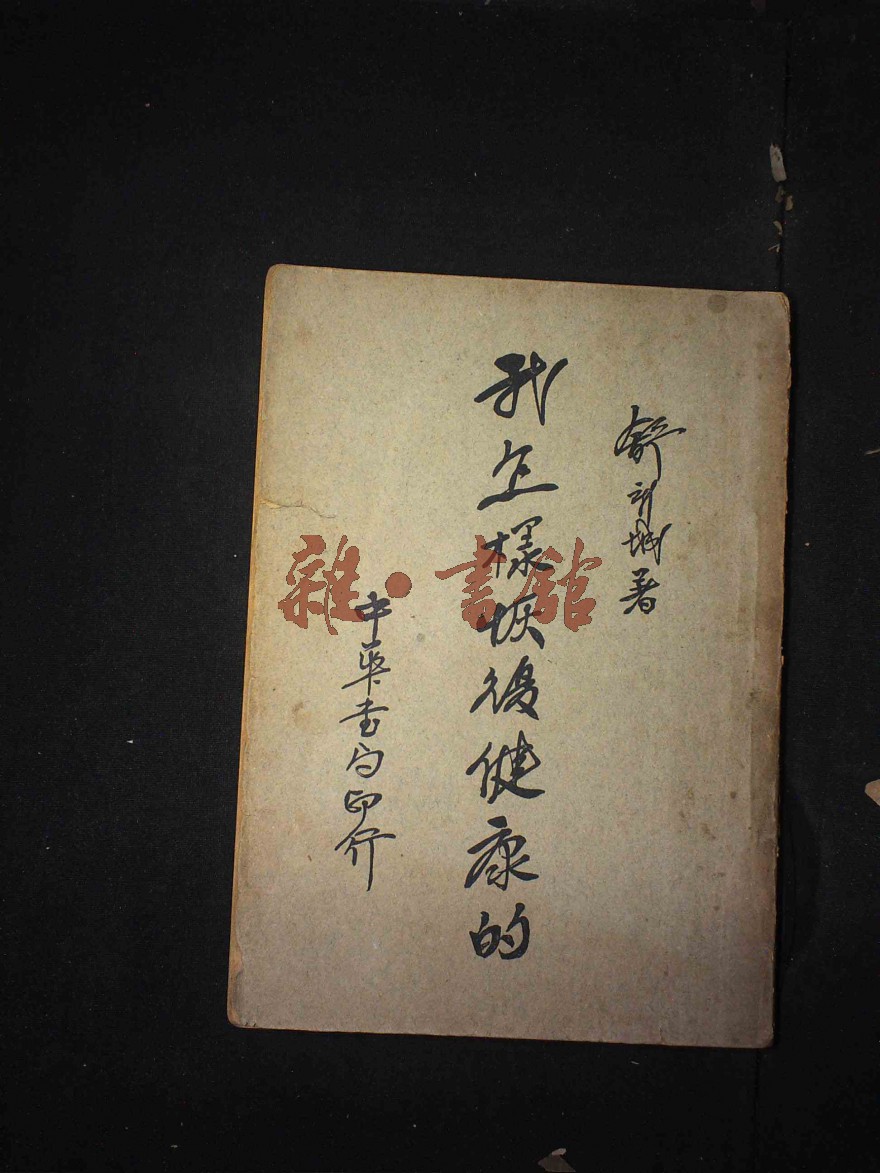 舒新城著
我怎樣恢復健康的
中華書局印行
雜·書館